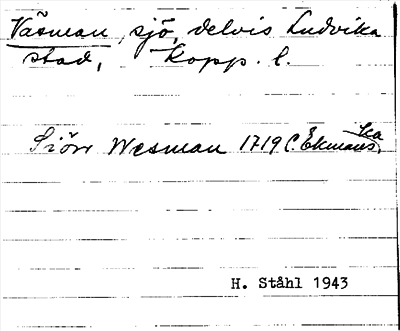 Väsman, sjö, delvis Ludvika
stad, Kopp. l.
Siöör Wesman 1719 C. Ekmans ka
H. Ståhl 1943